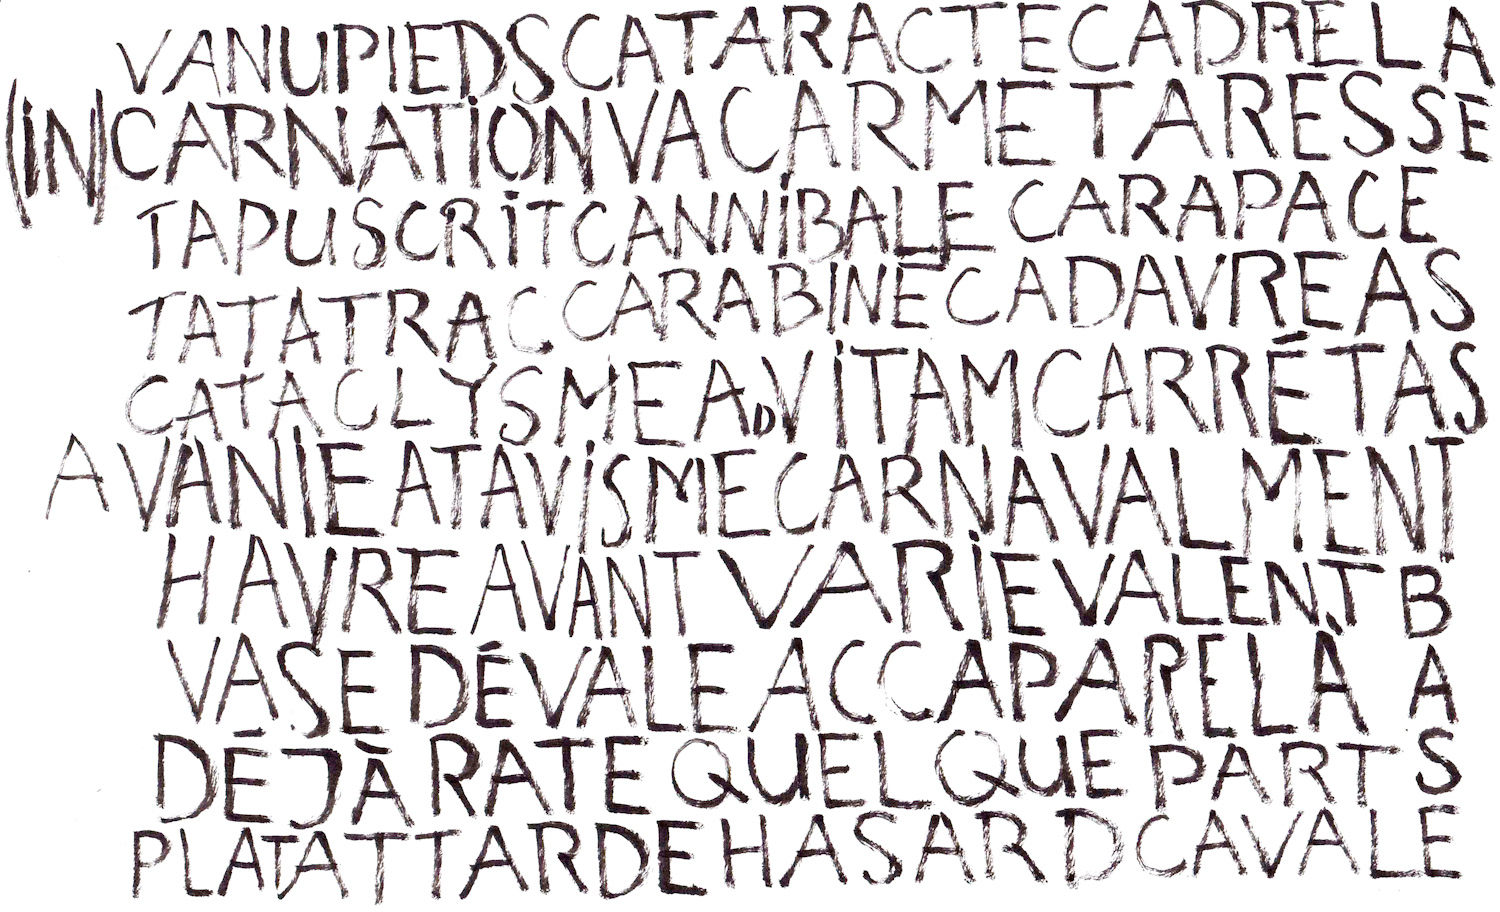 VANUPIEDSCATARACTECADRELA
(IN)CARNATIONVACARMETARESSE
TAPUSCRITCANNIBALE CARAPACE
TATATRACCARABINECADAVREAS
CATACLYSMEADVITAMCARRÉTAS
AVANIE ATAVISMECARNAVALMENT
HAVRE AVANT VARIEVALENT B
VASE DÉVALE ACCAPARELÀ A
DÉJÀ RATE QUELQUE PART S
PLATATTARDEHASARDCAVALE